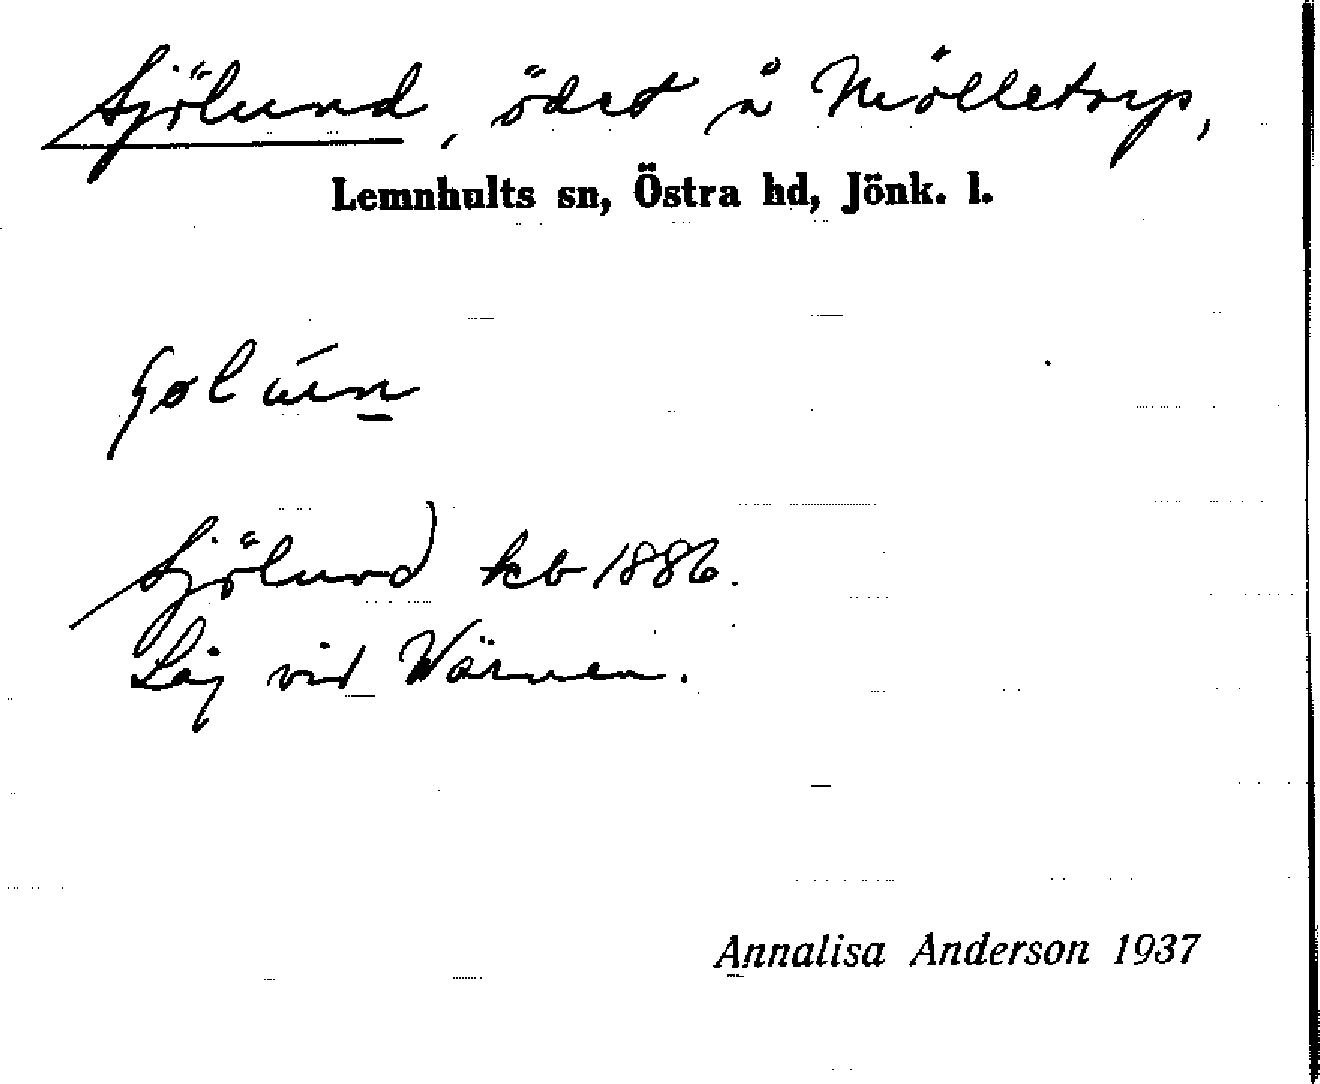 Sjölund, ödet å Mölletorp,
Lemnhults sn, Östra hd, Jönk. l.
Sjölund) kb 1886.
Låg vid Wärnen.
Annalisa Anderson 1937